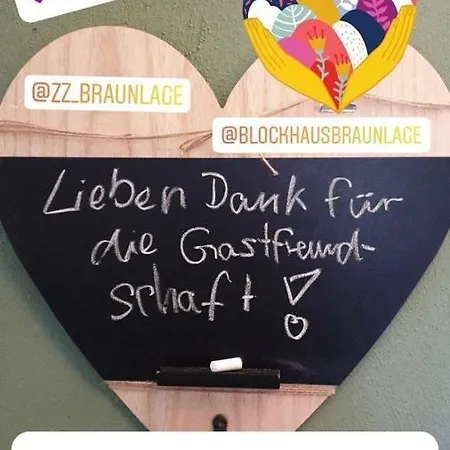 @ZZ_BRAUNLAGE
@BLOCKHAUSBRAUNLAGE
Lieben Dank für
die Gastfreund-
schaft!